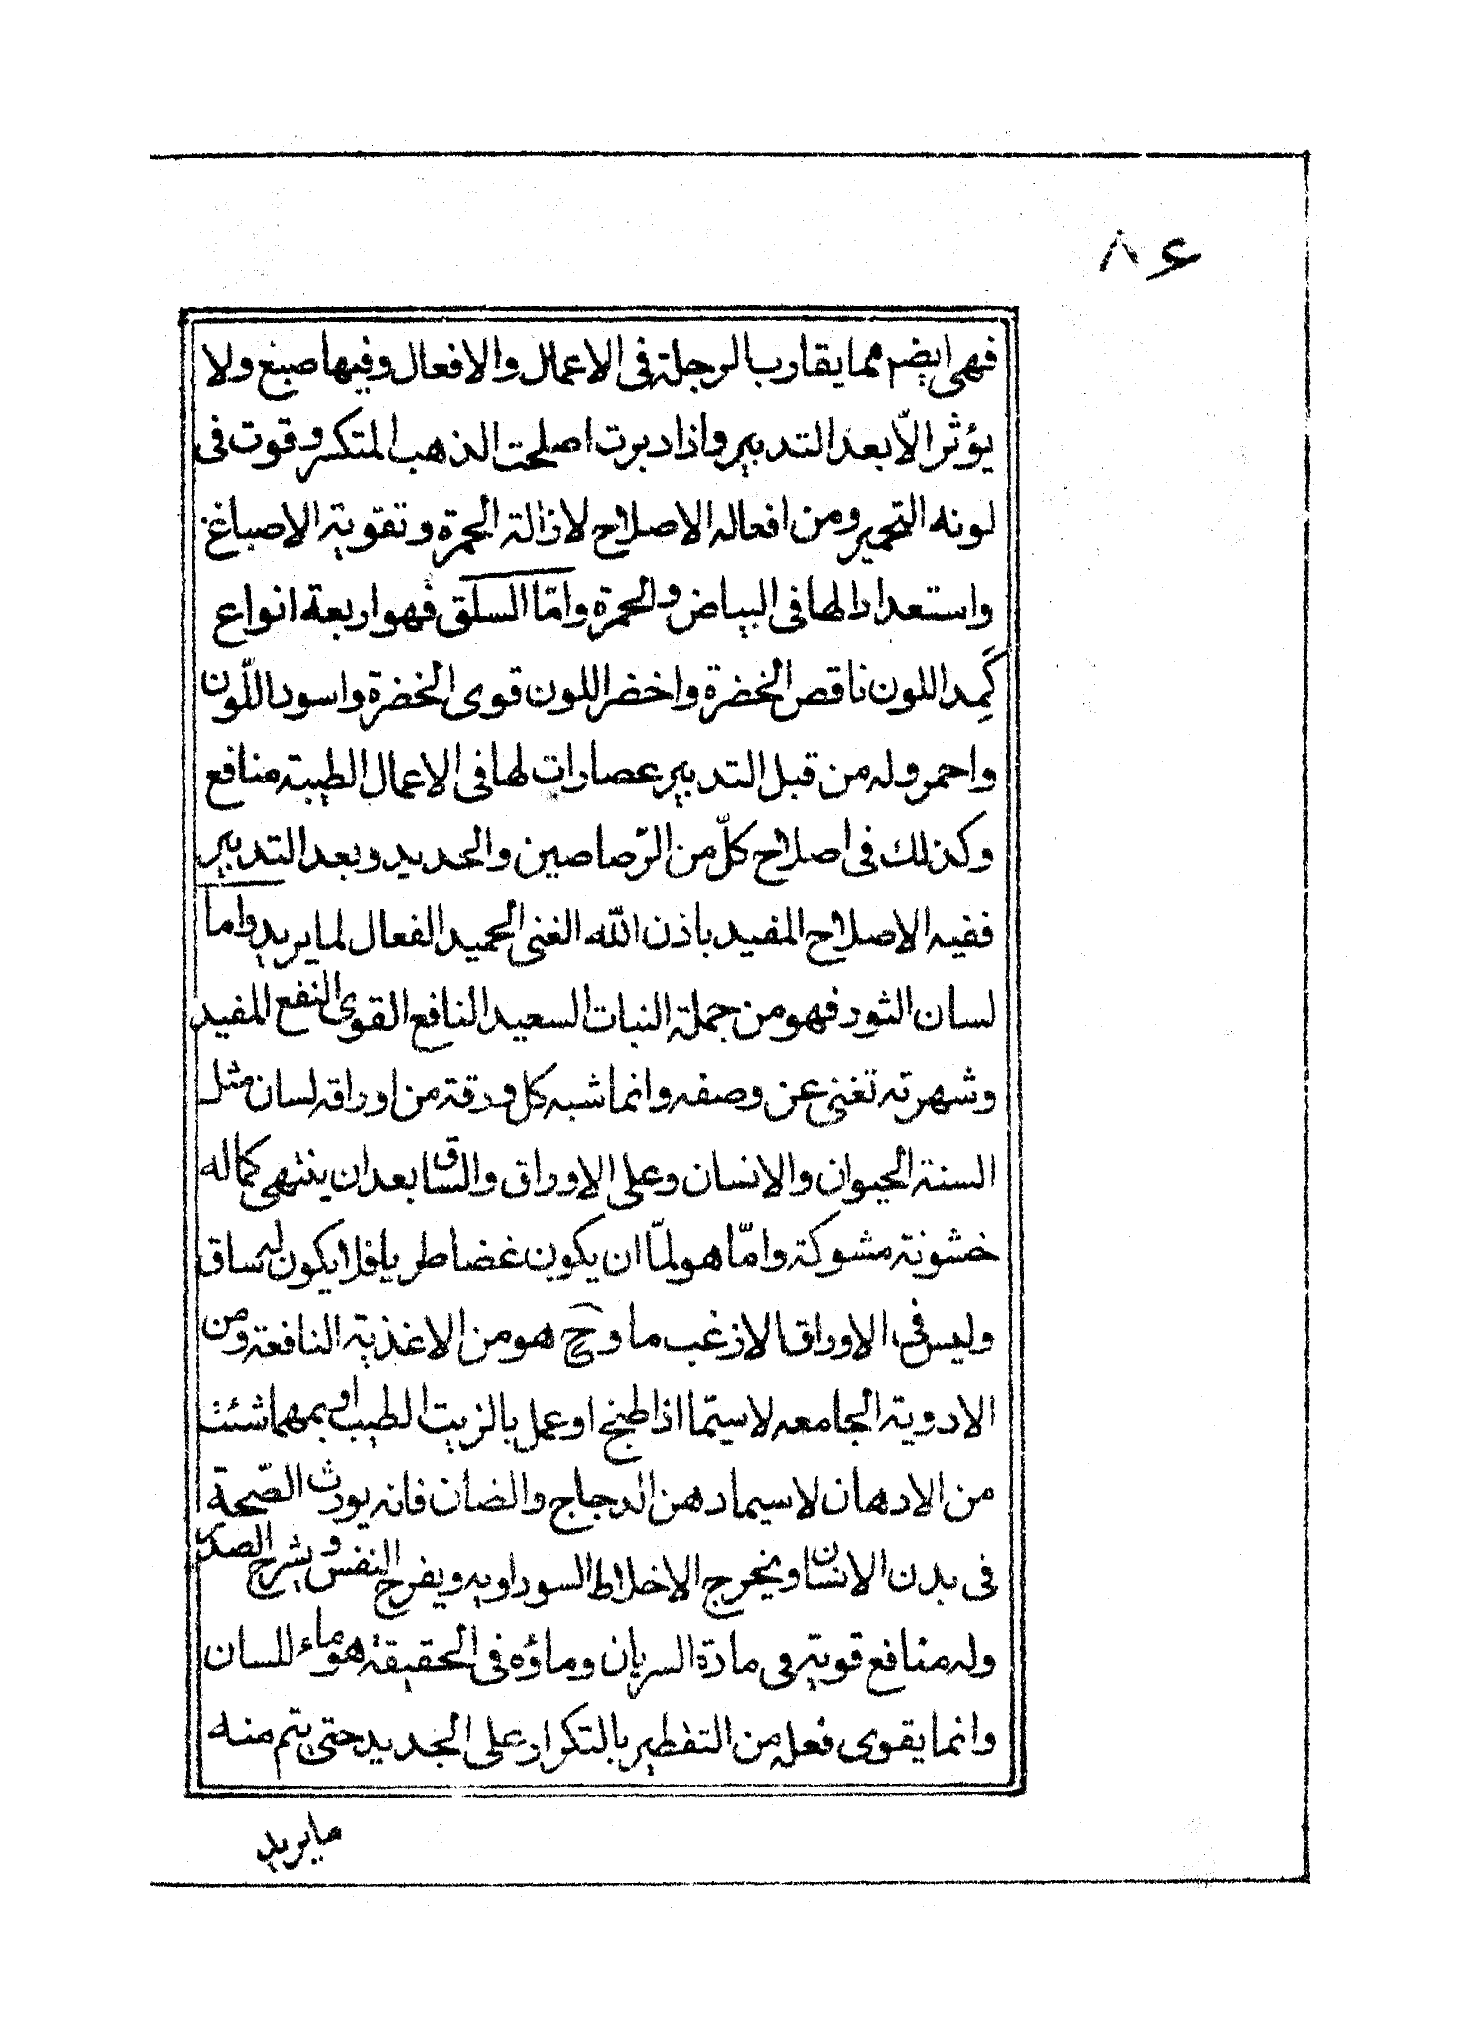 ٨٤
فهى ايضم مما يقارب الرجلة فى الاعمال والافعال وفيها صبغ ولا
يؤثر الّا بعد التدبير واذا دبرت اصلحت الذهب المتكسر وقوت فى
لونه التحمير ومن افعاله الاصلاح لازالة الحمرة وتقوية الاصباغ
واستعدادا لها فى البياض والحمرة وامّا السلق فهو اربعة انواع
كَمِد اللون ناقص الخضرة واخضر اللون قوى الخضرة واسود اللّون
واحمر وله من قبل التدبير عصارات لها فى الاعمال الطيبة منافع
وكذلك فى اصلاح كلّ من الرّصاصين والحديد وبعد التدبير
ففيه الاصلاح المفيد باذن اللّه الغنى الحميد الفعال لما يريد واما
لسان الثور فهو من جملة النبات السعيد النافع القوى النفع المفيد
وشهرته تغنى عن وصفه وانما شبه كل ورقة من اوراقه لسان مثل
السنة الحيوان والانسان وعلى الاوراق والساق بعد ان ينتهى كماله
خشونة مشوكة وامّا هو لمّا ان يكون غضا طريا فلا يكون له ساق
وليس فى الاوراق الا زغب ما وح هو من الاغذية النافعة ومن
الادوية الجامعه لا سيّما اذا طبخ او عمل بالزيت الطيب او بمهما شئت
من الادهان لا سيما دهن الدجاج والضان فانه يورث الصّحة
فى بدن الانسان ويخرج الاخلاط السوداويه ويفرح النفس ويشرح الصدر
وله منافع قوية فى مادة السريان وماؤه فى الحقيقة هو ماء للسان
وانما يقوى فعله من التفطير بالتكرار على الجديد حتى يتم منه
ما يريد